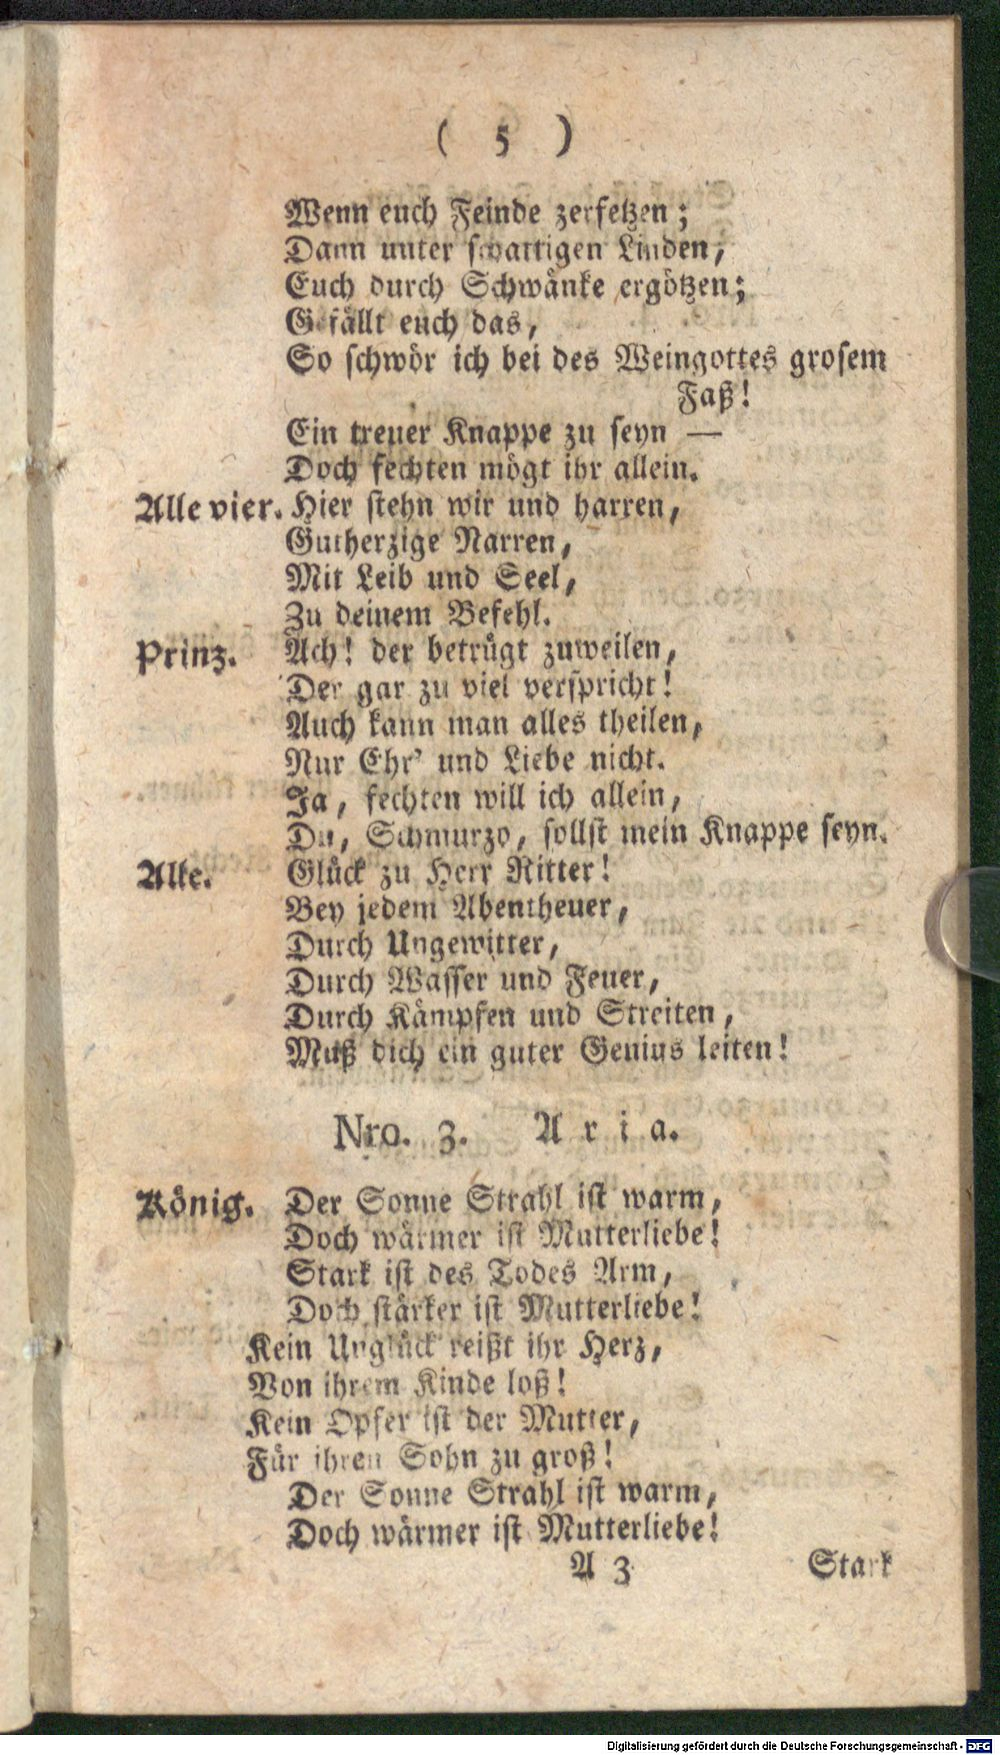 ( 5 )
Wenn euch Feinde zerfetzen;
Dann unter schattigen Linden,
Euch durch Schwänke ergötzen;
Gefällt euch das,
So schwör ich bei des Weingottes grosem
Faß!
Ein treuer Knappe zu seyn —
Doch fechten mögt ihr allein.
Alle vier. Hier stehn wir und harren,
Gutherzige Narren,
Mit Leib und Seel,
Zu deinem Befehl.
Prinz. Ach! der betrügt zuweilen,
Der gar zu viel verspricht!
Auch kann man alles theilen,
Nur Ehr' und Liebe nicht.
Ja, fechten will ich allein,
Du, Schmurzo, sollst mein Knappe seyn.
Alle. Glück zu Herr Ritter!
Bey jedem Abentheuer,
Durch Ungewitter,
Durch Wasser und Feuer,
Durch Kämpfen und Streiten,
Muß dich ein guter Genius leiten!
Nro. 3. Aria.
König. Der Sonne Strahl ist warm,
Doch wärmer ist Mutterliebe!
Stark ist des Todes Arm,
Doch stärker ist Mutterliebe!
Kein Unglück reißt ihr Herz,
Von ihrem Kinde loß!
Kein Opfer ist der Mutter,
Für ihren Sohn zu groß!
Der Sonne Strahl ist warm,
Doch wärmer ist Mutterliebe!
A 3 Stark
Digitalisierung gefördert durch die Deutsche Forschungsgemeinschaft - DFG